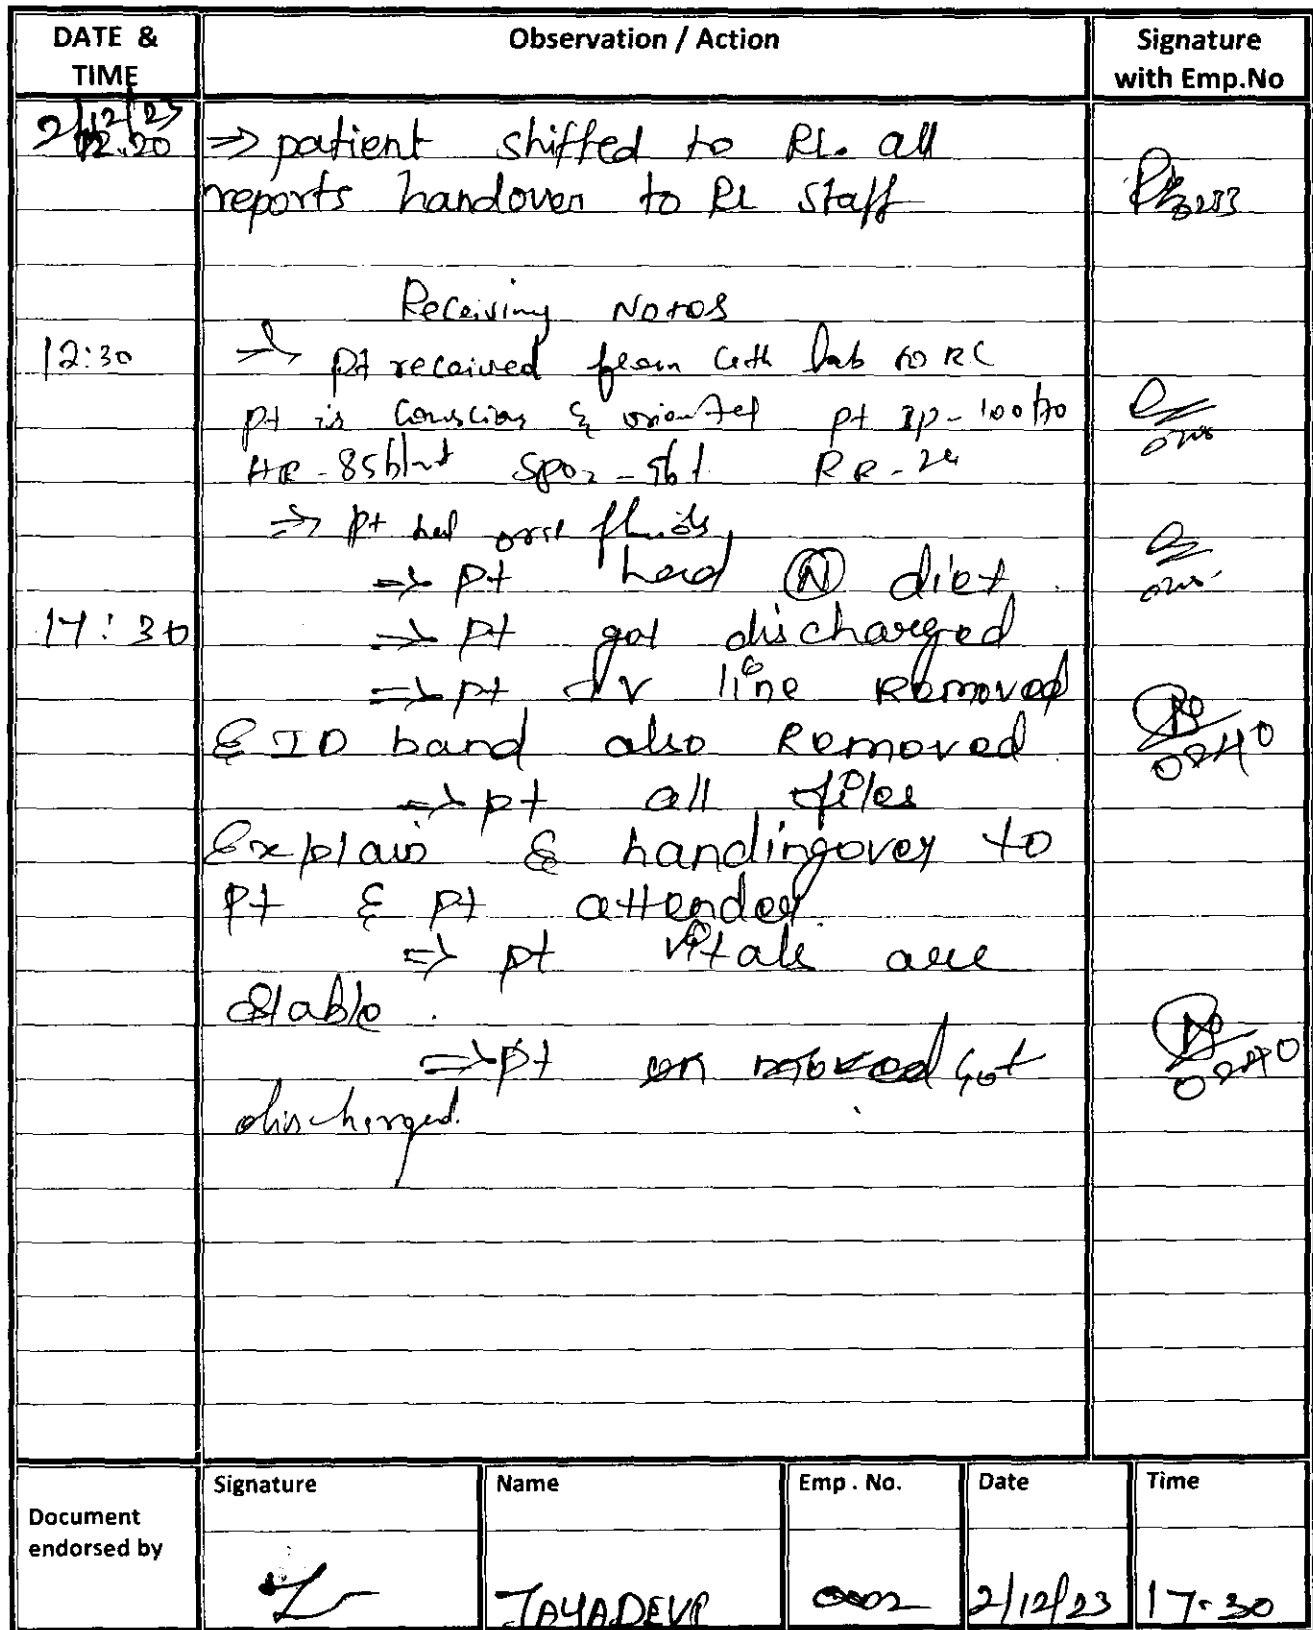 DATE & TIME Observation / Action Signature with Emp.No
2/12/23
12.20 => patient shifted to RL. all
reports handover to RL staff
Receiving Notes
12:30 => pt received from Cath lab to RL
pt is conscious & oriented pt BP - 100/70
HR - 85b/mt SPO2 - 96% RR - 24
=> pt had oral fluids
=> pt had (N) diet.
17:30 => pt got discharged
=> pt IV line Removed
& ID band also Removed 0240
=> pt all files
Explain & handingover to
pt & pt attender.
=> pt vitals are
stable.
=> pt got 0240
discharged.
Document endorsed by Signature Name Emp. No. Date Time
JAYADEVI 0002 2/12/23 17.30